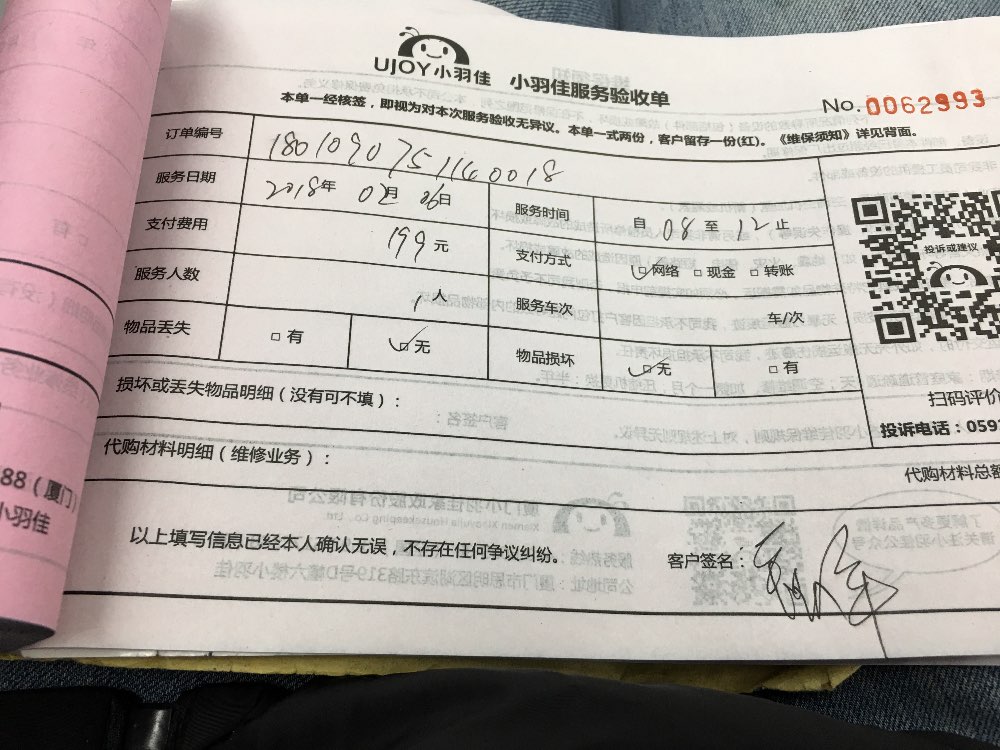 UJOY小羽佳 小羽佳服务验收单
No.0062993
本单一经核签，即视为对本次服务验收无异议。本单一式两份，客户留存一份(红)。《维保须知》详见背面。
订单编号 1801090751140018
服务日期 2018年 02月 06日 服务时间 自 08 至 12 止
支付费用 199元 支付方式 网络 现金 转账
服务人数 1人 服务车次 车/次
物品丢失 有 无 物品损坏 无 有
投诉或建议
扫码评价
投诉电话：059
损坏或丢失物品明细（没有可不填）：
代购材料明细（维修业务）：
代购材料总额
以上填写信息已经本人确认无误，不存在任何争议纠纷。
客户签名：
88（厦门）
小羽佳